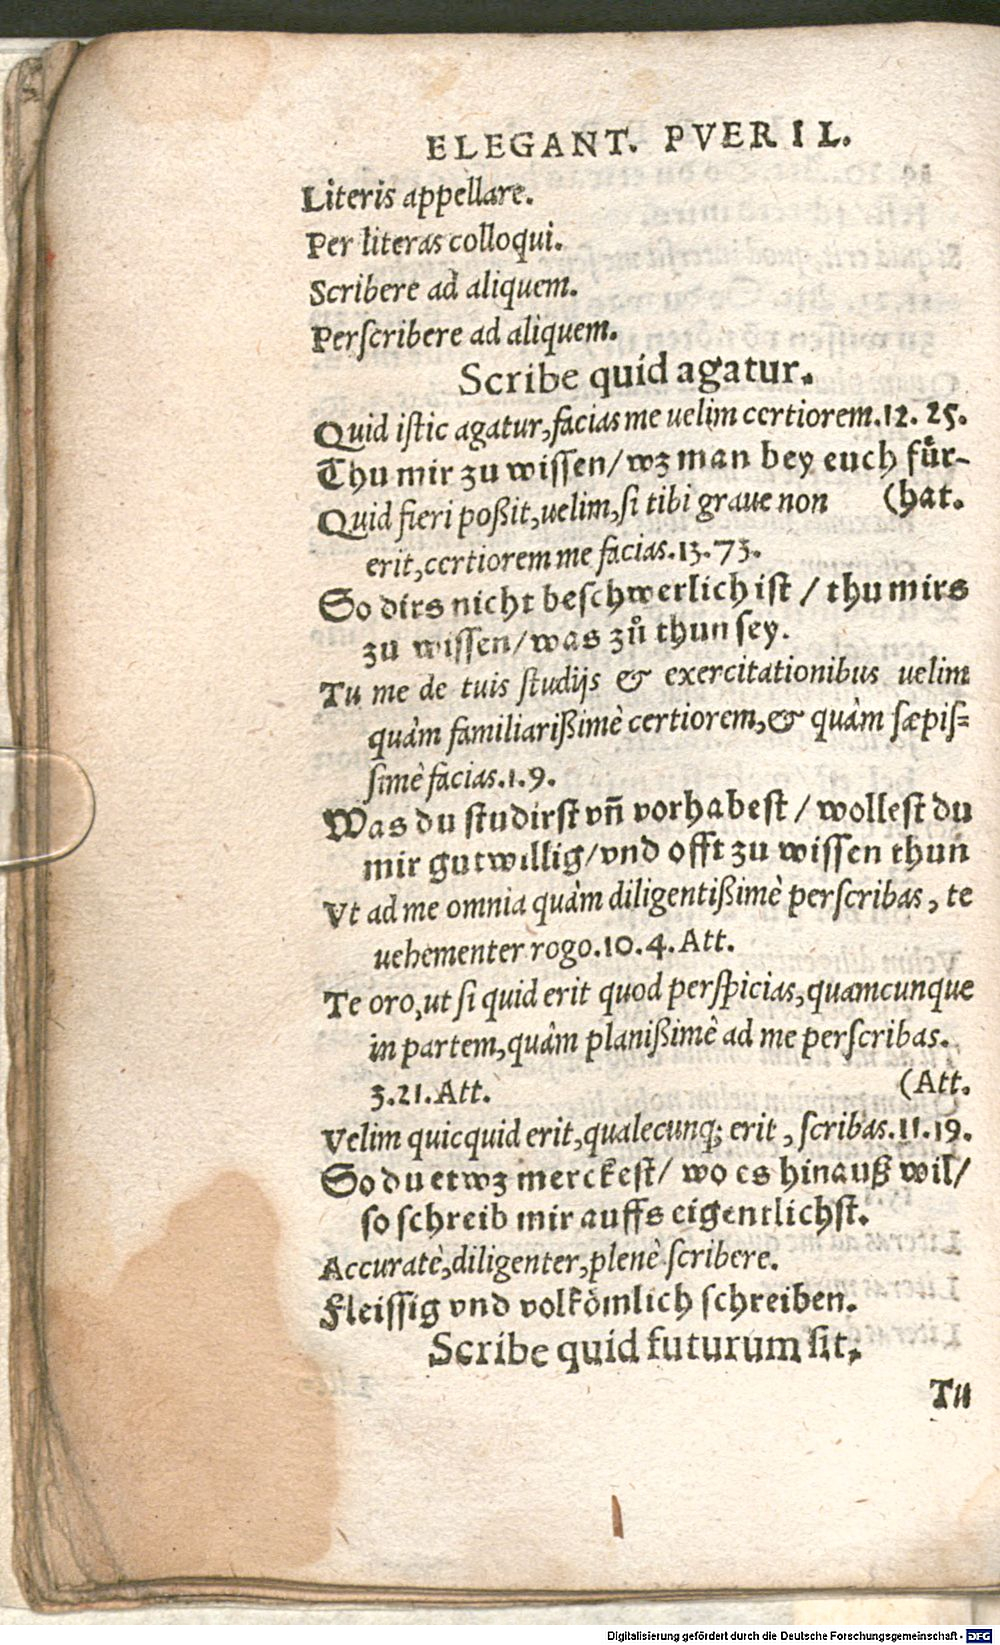 ELEGANT. PVERIL.
Literis appellare.
Per literas colloqui.
Scribere ad aliquem.
Perſcribere ad aliquem.
Scribe quid agatur.
Quid iſtic agatur, facias me uelim certiorem. 12. 25.
Thu mir zu wiſſen/ wz man bey euch fuͤr-
Quid fieri poßit, uelim, ſi tibi graue non (hat.
erit, certiorem me facias. 13. 73.
So dirs nicht beſchwerlich iſt / thu mirs
zu wiſſen/ was zuͦ thun ſey.
Tu me de tuis ſtudijs & exercitationibus uelim
quàm familiarißimè certiorem, & quàm ſæpiſ=
ſimè facias. 1. 9.
Was du ſtudirſt vñ vorhabeſt / wolleſt du
mir gutwillig/ vnd offt zu wiſſen thun
Vt ad me omnia quàm diligentißimè perſcribas, te
uehementer rogo. 10. 4. Att.
Te oro, ut ſi quid erit quod perſpicias, quamcunque
in partem, quàm planißimè ad me perſcribas.
3. 21. Att. (Att.
Velim quicquid erit, qualecunq; erit, ſcribas. 11. 19.
So du etwz merckeſt/ wo es hinauß wil/
ſo ſchreib mir auffs eigentlichſt.
Accuratè, diligenter, plenè ſcribere.
Fleiſſig vnd volkoͤmlich ſchreiben.
Scribe quid futurum ſit.
Tu
Digitalisierung gefördert durch die Deutsche Forschungsgemeinschaft - DFG